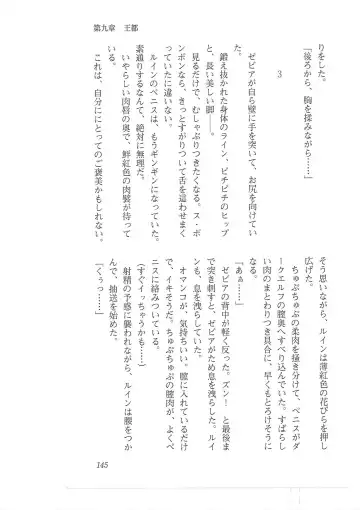 第九章　王都
りをした。
「後ろから、胸を揉みながら……」
3
ゼピアが自ら壁に手を突いて、お尻を向けてい
る。
鍛え抜かれた身体のライン、ピチピチのヒップ
と、長い美しい脚――。
見るだけで、むしゃぶりつきたくなる。スッポ
ンポンなら、きっとすがりついて舌を這わせまく
っていたに違いない。
ルインのペニスは、もうギンギンになっている。
素通りするなんて、絶対に無理だ。
いやらしい肉唇の奥で、鮮紅色の肉襞が待って
いる。
これは、自分ににとってのご褒美かもしれない。
そう思いながら、ルインは薄紅色の花びらを押し
広げた。
ちゅぷちゅぷの柔肉を掻き分けて、ペニスがダ
ークエルフの膣奥へすべり込んでいた。すばらし
い肉のまとわりつき具合に、早くもとろけそうに
なる。
「あぁ……」
ゼピアの背中が軽く反った。ズン！　と最後ま
で突き刺すと、ゼピアがため息を洩らした。ルイ
ンも、息を洩らしていた。
オマンコが、気持ちいい。膣に入れているだけ
で、イキそうだ。ちゅぷちゅぷの膣肉が、よくペ
ニスに絡みついている。
（すぐイッちゃうかも……）
射精の予感に襲われながら、ルインは腰をつか
んで、抽送を始めた。
「くぅっ……」
145